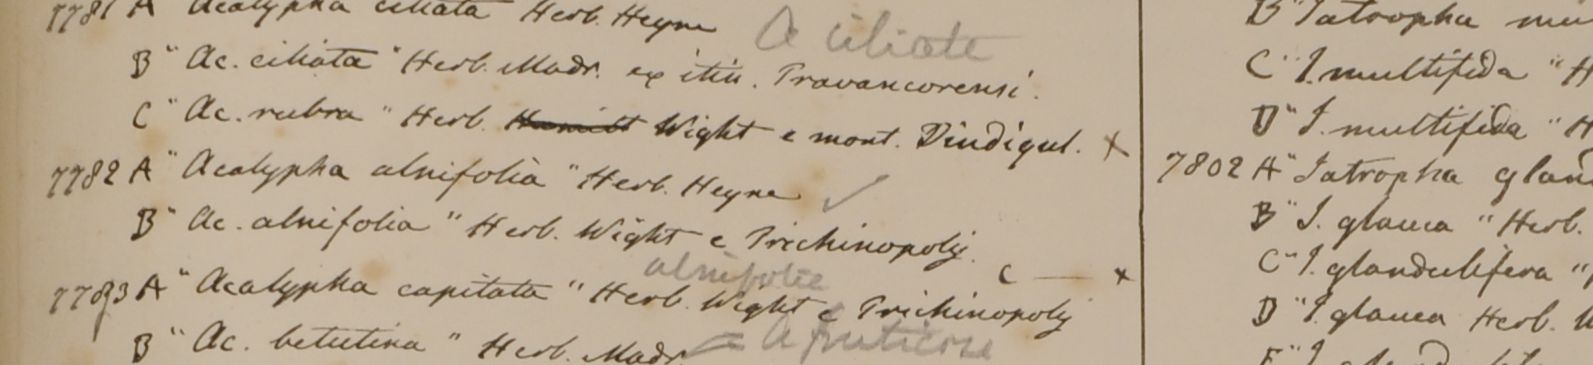 7781 A "Acalypha ciliata" Herb. Heyne A ciliate
B "Ac. ciliata" Herb. Madr. ex itin. Travancorensi.
C "Ac. rubra" Herb. Wight e mont. Dindigul. x
7782 A "Acalypha alnifolia" Herb. Heyne ✓
B "Ac. alnifolia" Herb. Wight e Trichinopoly.
alnifolia C — x
7783 A "Acalypha capitata" Herb. Wight e Trichinopoly
B "Ac. betulina" Herb. Madr = A fruticose
B "Jatropha mu
C "J. multifida" H
D "J. multifida" H
7802 A "Jatropha glan
B "J. glauca" Herb.
C "J. glandulifera"
D "J. glauca Herb. W
E "J.